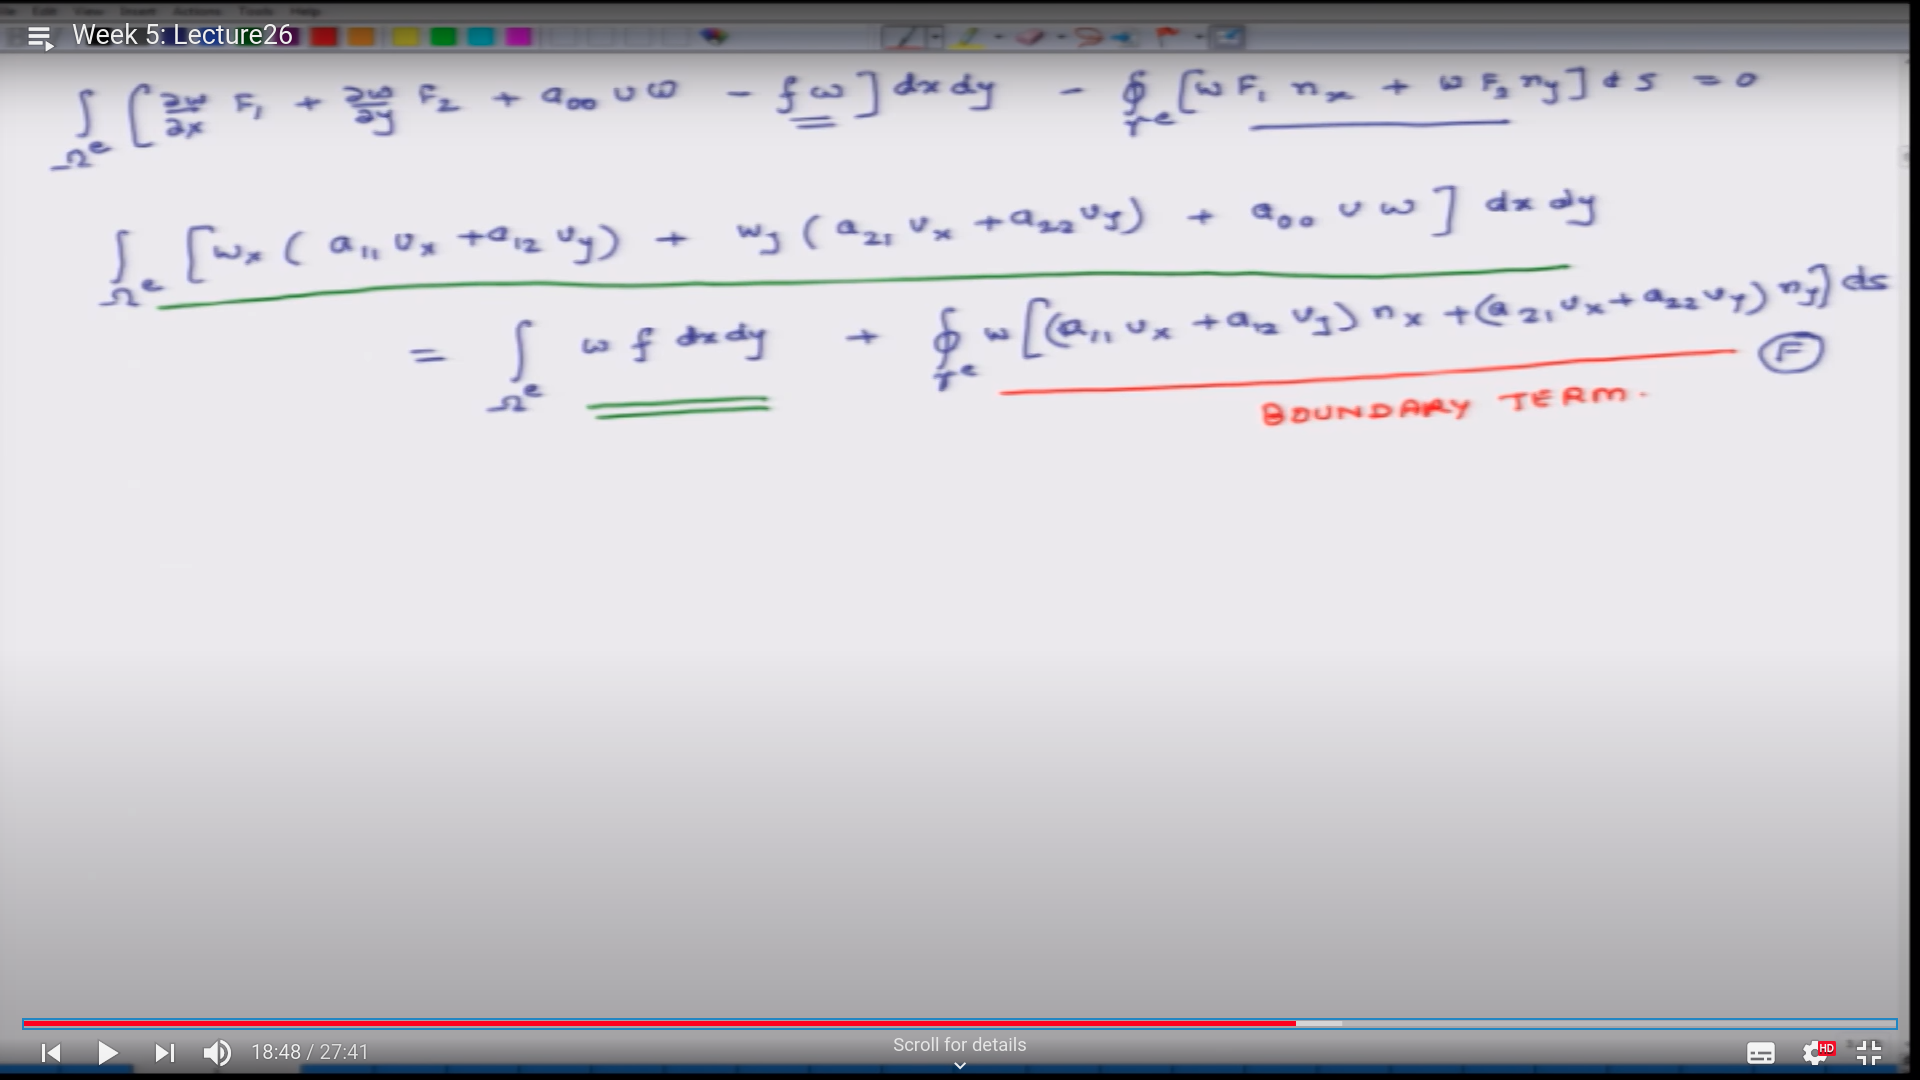 File Edit View Insert Actions Tools Help
Week 5: Lecture26
∫_Ωᵉ [∂w/∂x F₁ + ∂w/∂y F₂ + a₀₀ u w - f w] dx dy - ∮_Γᵉ [w F₁ n_x + w F₂ n_y] ds = 0
∫_Ωᵉ [w_x (a₁₁ u_x + a₁₂ u_y) + w_y (a₂₁ u_x + a₂₂ u_y) + a₀₀ u w] dx dy
= ∫_Ωᵉ w f dx dy + ∮_Γᵉ w [(a₁₁ u_x + a₁₂ u_y) n_x + (a₂₁ u_x + a₂₂ u_y) n_y] ds
F
BOUNDARY TERM.
18:48 / 27:41
Scroll for details
HD